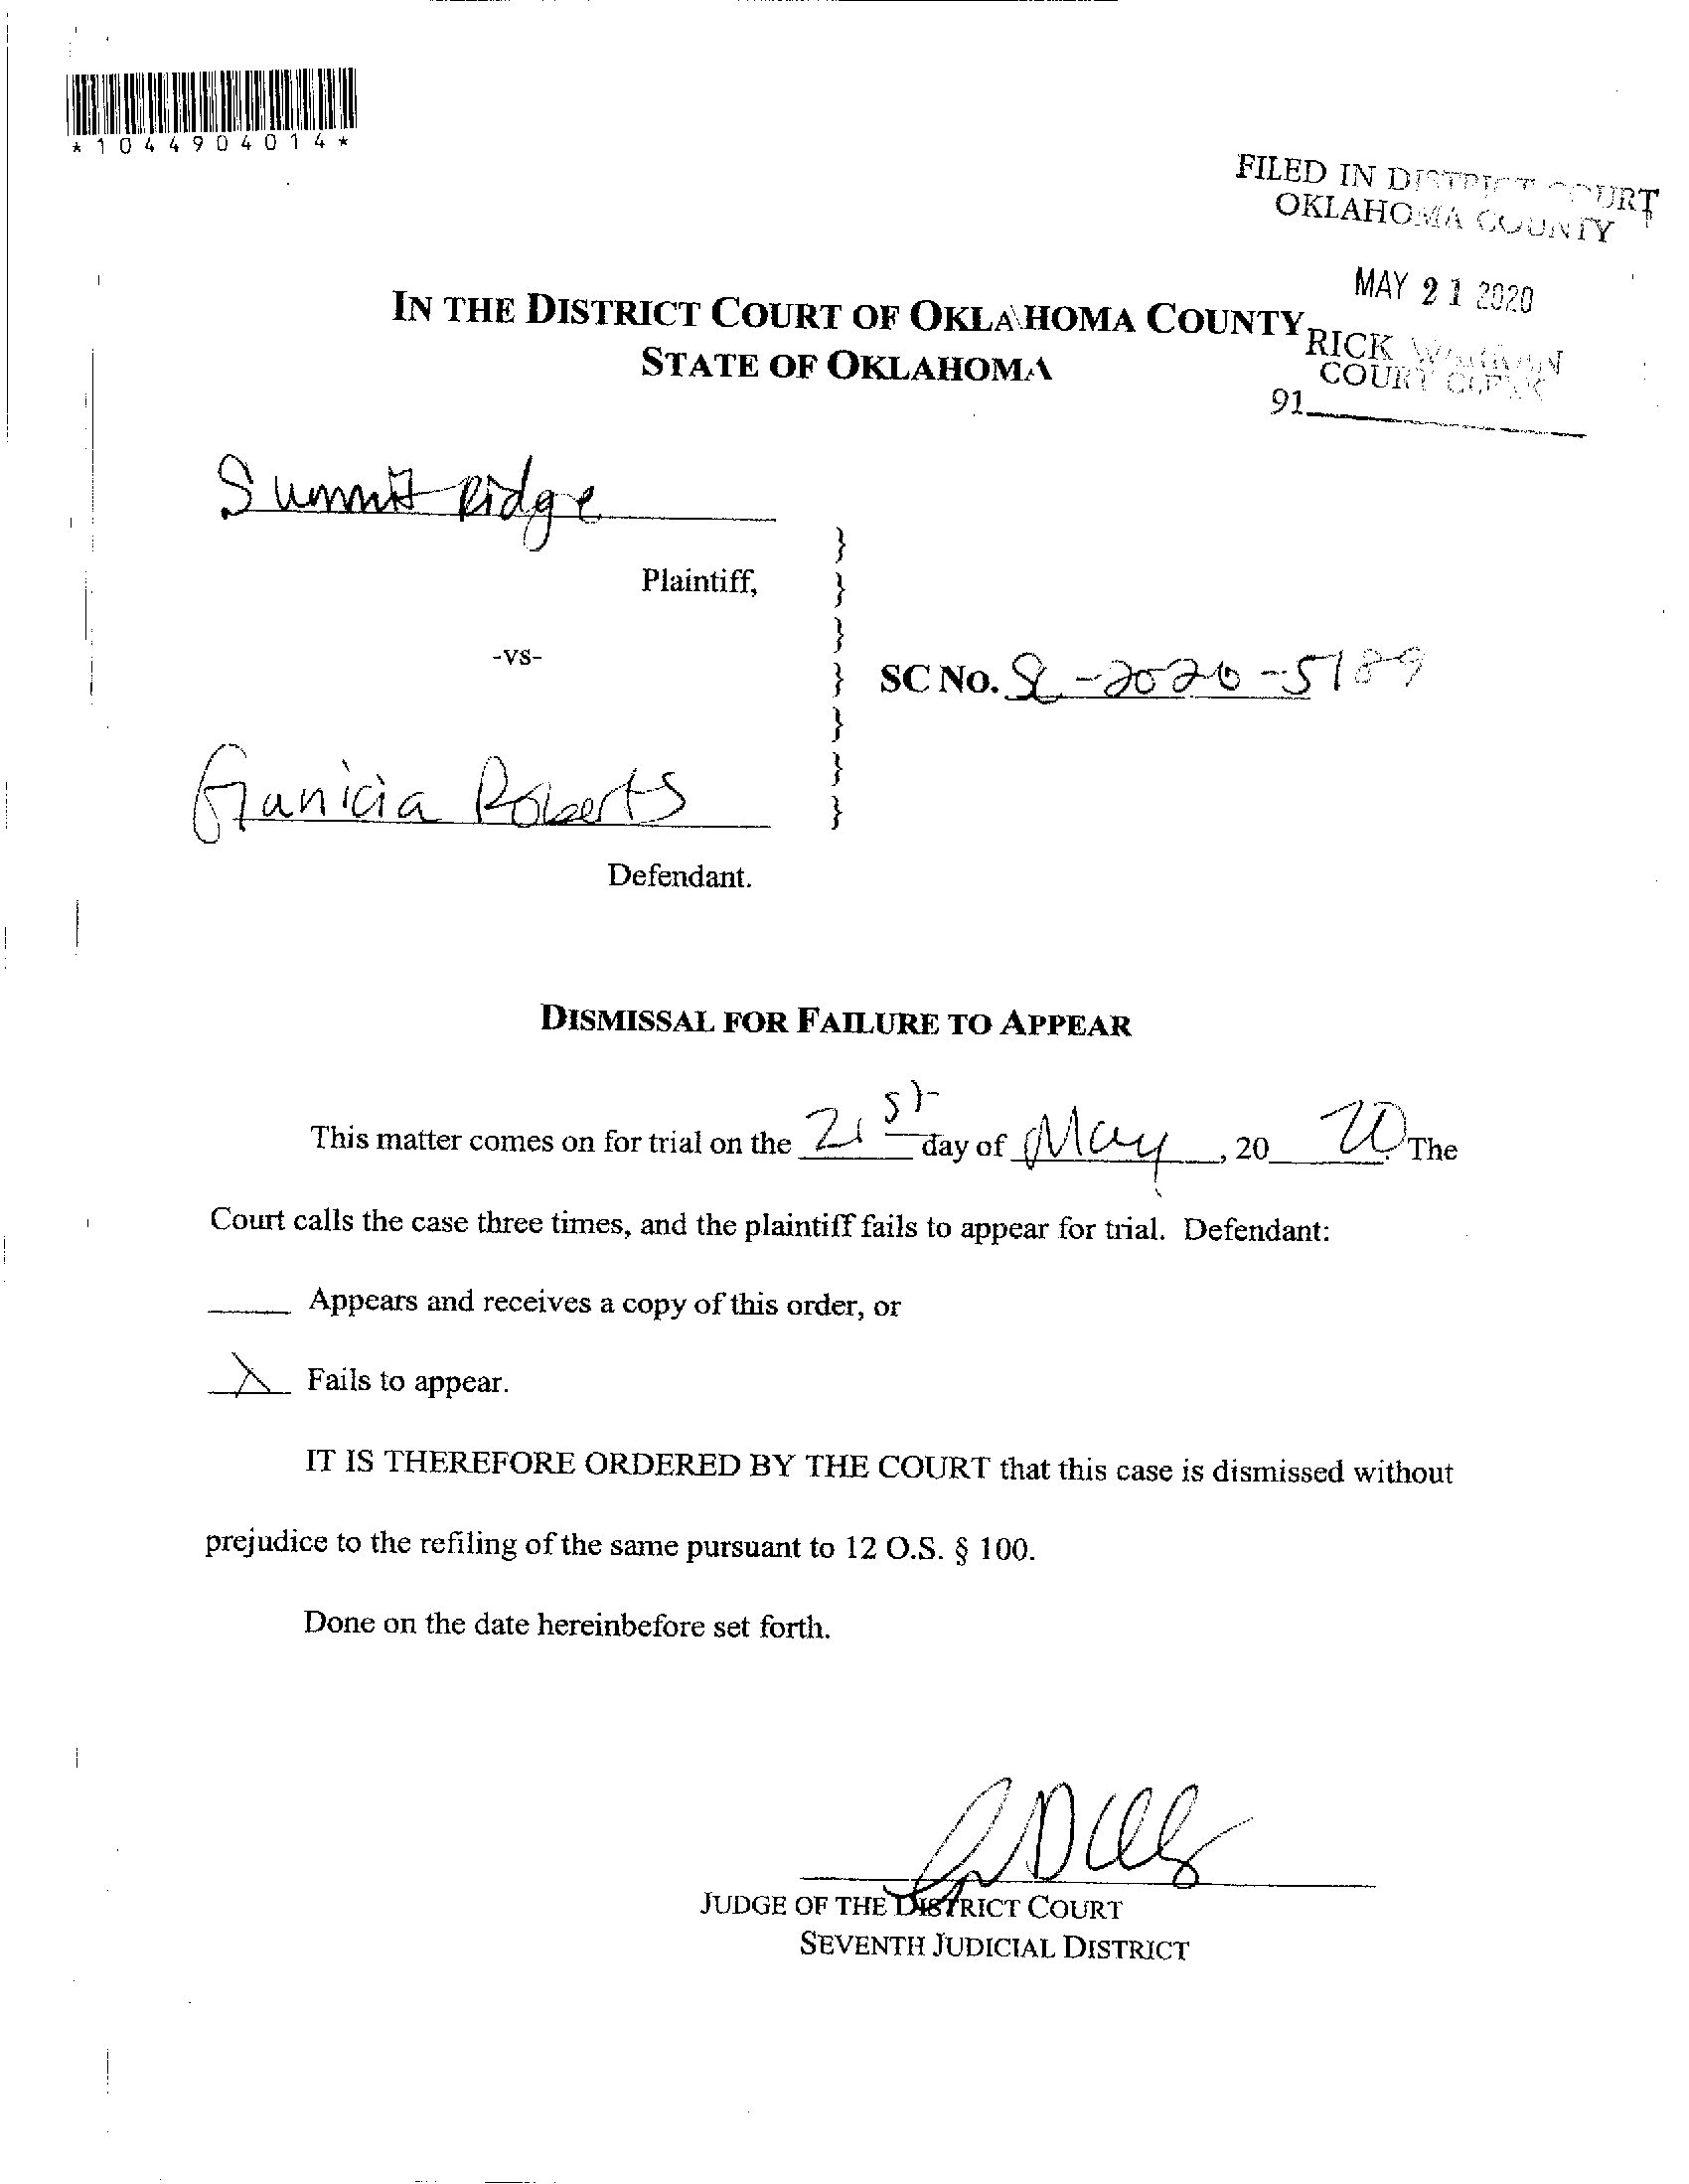 *1044904014*
FILED IN DISTRICT COURT
OKLAHOMA COUNTY
MAY 21 2020
RICK
COURT CLERK
91
IN THE DISTRICT COURT OF OKLAHOMA COUNTY
STATE OF OKLAHOMA
Summit Ridge
Plaintiff,
-vs-
SC NO. SC-2020-5189
Roberts
Defendant.
DISMISSAL FOR FAILURE TO APPEAR
This matter comes on for trial on the 21st day of May, 20 20. The
Court calls the case three times, and the plaintiff fails to appear for trial. Defendant:
Appears and receives a copy of this order, or
X Fails to appear.
IT IS THEREFORE ORDERED BY THE COURT that this case is dismissed without
prejudice to the refiling of the same pursuant to 12 O.S. § 100.
Done on the date hereinbefore set forth.
JUDGE OF THE DISTRICT COURT
SEVENTH JUDICIAL DISTRICT